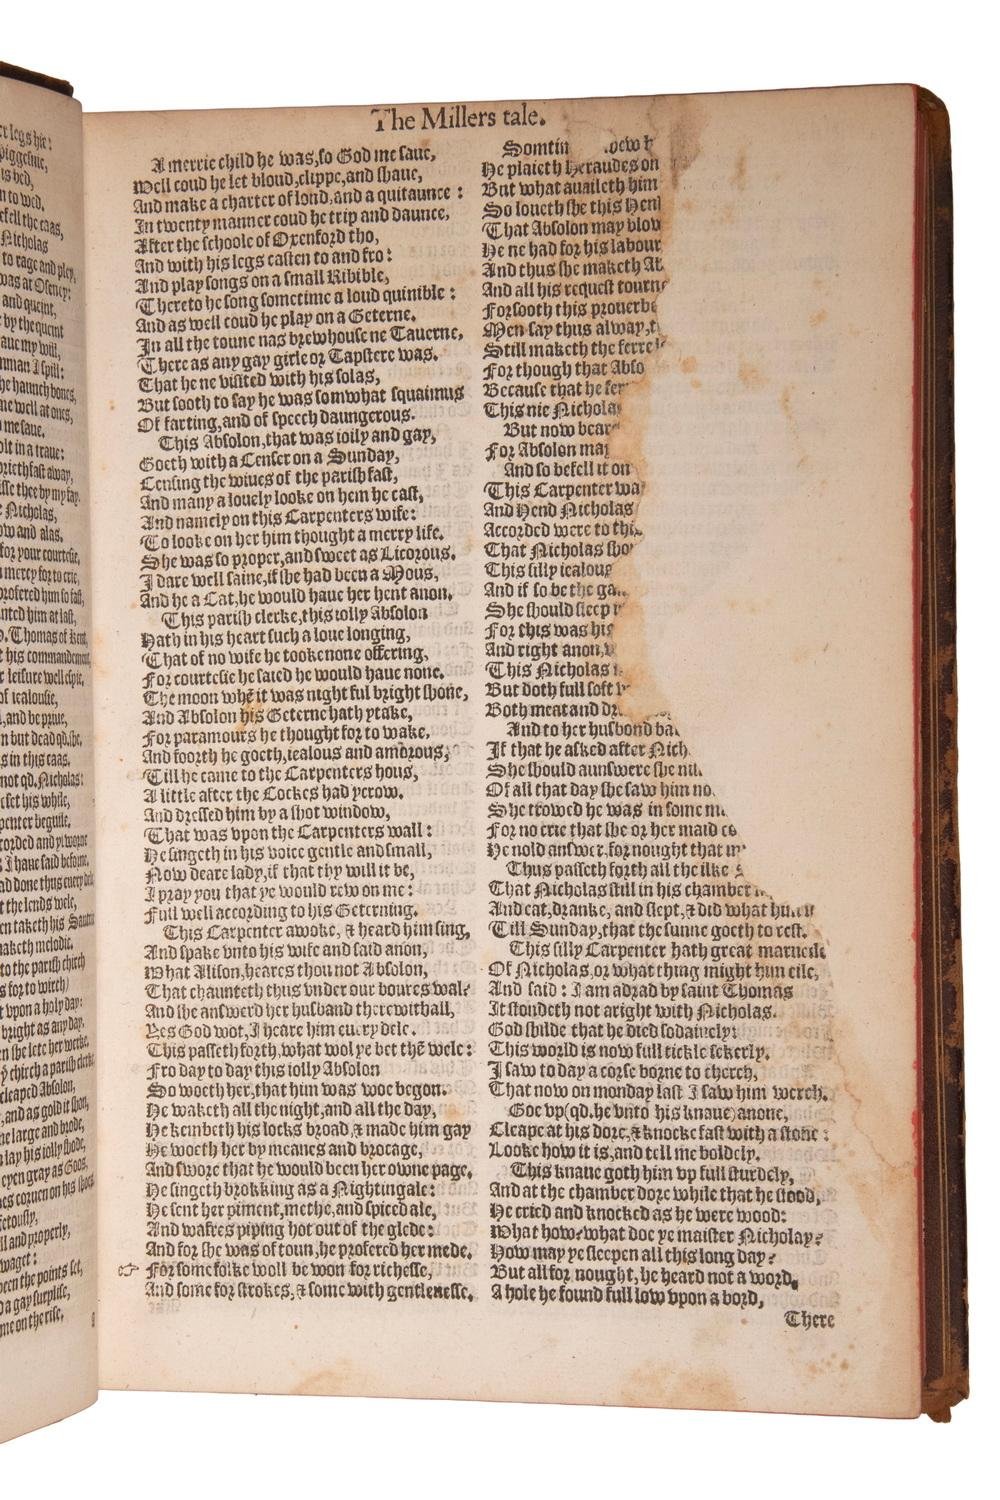 er legs hie:
piggesnie,
is bed,
n to wed.
efell the caas,
Nicholas
to rage and pley,
was at Oseney:
and queint,
by the queint
aue my will,
mman I spill:
he haunch bones,
me well at ones,
me saue.
olt in a traue:
wrieth fast away,
sse thee by my fay.
Nicholas,
ow and alas.
for your courtesie,
mercy for to crie,
profered him so fast,
nted him at last,
S. Thomas of Kent,
t his commandement
r leisure well espie,
of iealousie,
,and be priue,
n but dead qd. she.
s in this caas.
not qd. Nicholas:
set his while,
penter beguile.
corded and yworne
s I haue said beforne,
ad done thus euery dele
t the lends wele,
en taketh his Sautrie
maketh melodie.
to the parish chirch
s for to wirch)
t vpon a holy day:
bright as any day,
en she lete her werke.
ẏ chirch a parish clerke
cleaped Absolon,
,and as gold it shon,
ne large and brode,
lay his iolly shode,
eyen gray as Goos,
es coruen on his shoos
etously,
ll and properly,
waget:
been the points set,
d a gay surplise,
me on the rise.
The Millers tale.
A merrie child he was, so God me saue,
Well coud he let bloud, clippe, and shaue,
And make a charter of lond, and a quitaunce:
In twenty manner coud he trip and daunce,
After the schoole of Oxenford tho,
And with his legs casten to and fro:
And play songs on a small Ribible,
Thereto he song sometime a loud quinible:
And as well coud he play on a Geterne.
In all the toune nas brewhouse ne Tauerne,
There as any gay girle or Tapstere was.
That he ne visited with his solas,
But sooth to say he was somwhat squaimus
Of farting, and of speech daungerous.
This Absolon, that was ioily and gay,
Goeth with a Censer on a Sunday,
Censing the wiues of the parish fast,
And many a louely looke on hem he cast,
And namely on this Carpenters wife:
To looke on her him thought a merry life.
She was so proper, and sweet as Licorous.
I dare well saine, if she had been a Mous,
And he a Cat, he would haue her hent anon.
This parish clerke, this iolly Absolon
Hath in his heart such a loue longing,
That of no wife he tooke none offering,
For courtesie he saied he would haue none.
The moon whẽ it was night ful bright shone,
And Absolon his Geterne hath ytake,
For paramours he thought for to wake,
And foorth he goeth, iealous and amorous,
Till he came to the Carpenters hous,
A little after the Cockes had ycrow.
And dressed him by a shot window,
That was vpon the Carpenters wall:
He singeth in his voice gentle and small,
Now deare lady, if that thy will it be,
I pray you that ye would rew on me:
Full well according to his Geterning.
This Carpenter awoke, & heard him sing,
And spake vnto his wife and said anon,
What Alison, heares thou not Absolon,
That chaunteth thus vnder our boures wal?
And she answerd her husband therewithall,
Yes God wot, I heare him euery dele.
This passeth forth, what wol ye bet thẽ wele:
Fro day to day this iolly Absolon
So woeth her, that him was woe begon.
He waketh all the night, and all the day,
He kembeth his locks broad, & made him gay
He woeth her by meanes and brocage,
And swore that he would been her owne page.
He singeth brokking as a Nightingale:
He sent her piment, methe, and spiced ale,
And wafres piping hot out of the glede:
And for she was of toun, he profered her mede.
☞ For some folke woll be won for richesse,
And some for strokes, & some with gentlenesse.
Somtin
He plaieth Heraudes on
But what auaileth him
So loueth she this Hen
That Absolon may blow
He ne had for his labour
And thus she maketh Ab
And all his request tourn
Forsooth this prouerb
Men say thus alway, t
Still maketh the ferre
For though that Abso
Because that he fer
This nie Nichola
But now bear
For Absolon may
And so befell it on
This Carpenter wa
And Hend Nicholas
Accorded were to this
That Nicholas sho
This silly iealous
And if so be the ga
She should sleep
For this was his
And right anon,
This Nicholas
But doth full soft
Both meat and dr
And to her husbond ba
If that he asked after Nich
She should aunswere she ni
Of all that day she saw him no
She trowed he was in some m
For no crie that she or her maid co
He nold answer, for nought that m
Thus passeth forth all the ilke S
That Nicholas still in his chamber
And eat, dranke, and slept, & did what
Till Sunday, that the sunne goeth to rest.
This silly Carpenter hath great marueile
Of Nicholas, or what thing might him eile,
And said: I am adrad by saint Thomas
It stondeth not aright with Nicholas.
God shilde that he died sodainely:
This world is now full tickle sekerly.
I saw to day a corse borne to cherch,
That now on monday last I saw him werch.
Goe vp (qd. he vnto his knaue) anone,
Cleape at his dore, & knocke fast with a stone:
Looke how it is, and tell me boldely.
This knaue goth him vp full sturdely,
And at the chamber dore while that he stood,
He cried and knocked as he were wood:
What how? what doe ye maister Nicholay?
How may ye sleepen all this long day?
But all for nought, he heard not a word,
A hole he found full low vpon a bord,
There